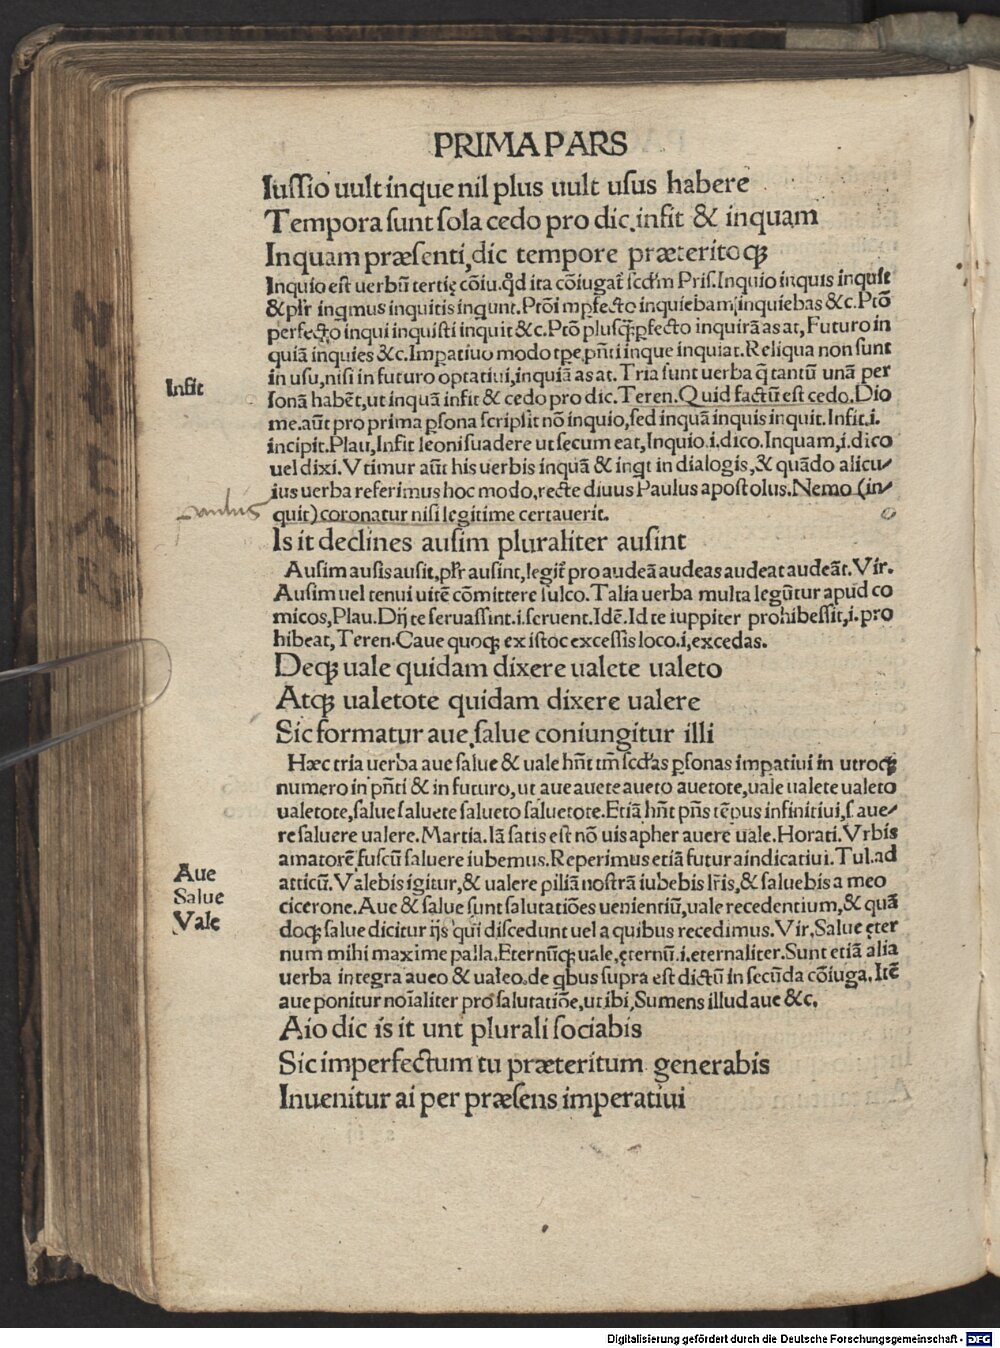 PRIMA PARS
Iussio uult inque nil plus uult usus habere
Tempora sunt sola cedo pro dic, insit & inquam
Inquam præsenti, dic tempore præteritoqȝ
Inquio est uerbū tertię cōiu. qđ ita cōiugat᷑ scd̄m Pris. Inquio inquis inquit
& plr̄ inqmus inquitis inqunt. Ptōi mpfecto inquiebam, inquiebas &c. Ptō
perfecto inqui inquisti inquit &c. Ptō plusqȝpfecto inquirā as at, Futuro in
quiā inquies &c. Impatiuo modo tpe, pn̄ti inque inquiat. Reliqua non sunt
in usu, nisi in futuro optatiui, inquiā as at. Tria sunt uerba q̄ tantū unā per
Insit
sonā habēt, ut inquā infit & cedo pro dic. Teren. Quid factū est cedo. Dio
me. aūt pro prima psona scripsit nō inquio, sed inquā inquis inquit. Infit. i.
incipit. Plau, Infit leoni suadere ut secum eat, Inquio. i. dico. Inquam, i. dico
uel dixi. Vtimur aūt his uerbis inquā & inqt in dialogis, & quādo alicu/
ius uerba referimus hoc modo, recte diuus Paulus apostolus. Nemo (in/
paulus
quit) coronatur nisi legitime certauerit.
Is it declines ausim pluraliter ausint
Ausim ausis ausit, plr̄ ausint, legit᷑ pro audeā audeas audeat audeāt. Vir.
Ausim uel tenui uitē cōmittere sulco. Talia uerba multa legūtur apud co
micos, Plau. Dij te seruassint. i. seruent. Idē. Id te iuppiter prohibessit, i. pro
hibeat, Teren. Caue quoqȝ ex istoc excessis loco. i, excedas.
Deqȝ uale quidam dixere ualete ualeto
Atqȝ ualetote quidam dixere ualere
Sic formatur aue, salue coniungitur illi
Hæc tria uerba aue salue & uale hn̄t tm̄ scd̄as psonas impatiui in utroqȝ
numero in pn̄ti & in futuro, ut aue auete aueto auetote, uale ualete ualeto
ualetote, salue saluete salueto saluetote. Etiā hn̄t pn̄s tēpus infinitiui, s. aue/
re saluere ualere. Martia. Iā satis est nō uis apher auere uale. Horati. Vrbis
amatorē fuscū saluere iubemus. Reperimus etiā futura indicatiui. Tul. ad
Aue
atticū. Valebis igitur, & ualere piliā nostrā iubebis lr̄is, & saluebis a meo
Salue
cicerone. Aue & salue sunt salutatiōes uenientiū, uale recedentium, & quā
Vale
doqȝ salue dicitur ijs qui discedunt uel a quibus recedimus. Vir, Salue ęter
num mihi maxime palla. Eternūqȝ uale, ęternū. i. eternaliter. Sunt etiā alia
uerba integra aueo & ualeo. de qbus supra est dictū in secūda cōiuga. Itē
aue ponitur noīaliter pro salutatiōe, ut ibi, Sumens illud aue &c.
Aio dic is it unt plurali sociabis
Sic imperfectum tu præteritum generabis
Inuenitur ai per præsens imperatiui
Digitalisierung gefördert durch die Deutsche Forschungsgemeinschaft - DFG